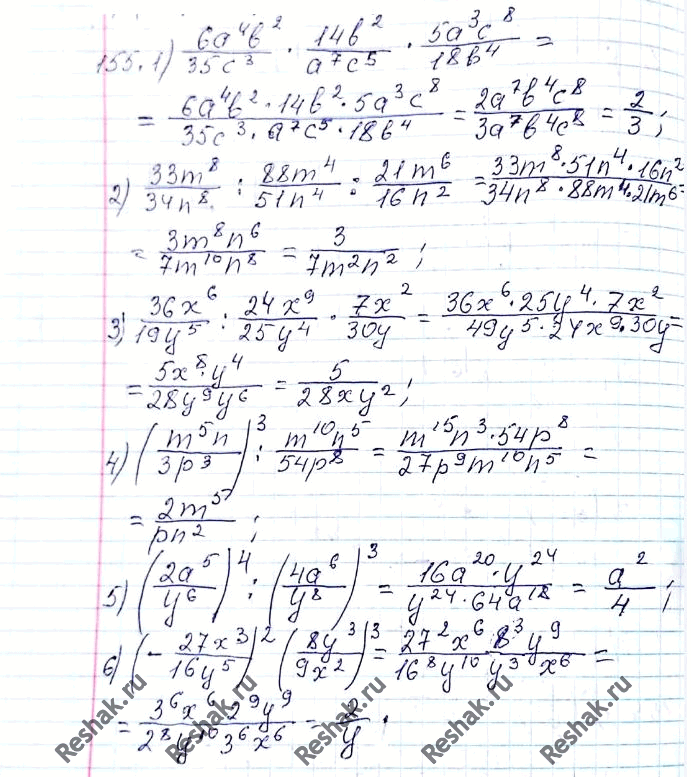 155. 1) 6a⁴b²/35c³ · 14b²/a⁷c⁵ · 5a³c⁸/18b⁴ =
= 6a⁴b² · 14b² · 5a³c⁸/35c³ · a⁷c⁵ · 18b⁴ = 2a⁷b⁴c⁸/3a⁷b⁴c⁸ = 2/3 ;
2) 33m⁸/34n⁸ : 88m⁴/51n⁴ : 21m⁶/16n² = 33m⁸ · 51n⁴ · 16n²/34n⁸ · 88m⁴ · 21m⁶ =
= 3m⁸n⁶/7m¹⁰n⁸ = 3/7m²n² ;
3) 36x⁶/19y⁵ : 24x⁹/25y⁴ · 7x²/30y = 36x⁶ · 25y⁴ · 7x²/49y⁵ · 24x⁹ · 30y =
= 5x⁸ · y⁴/28y⁹y⁶ = 5/28xy² ;
4) (m⁵n/3p³)³ : m¹⁰n⁵/54p⁸ = m¹⁵n³ · 54p⁸/27p⁹m¹⁰n⁵ =
= 2m⁵/pn² ;
5) (2a⁵/y⁶)⁴ : (4a⁶/y⁸)³ = 16a²⁰ · y²⁴/y²⁴ · 64a¹⁸ = a²/4 ;
6) (- 27x³/16y⁵)² (8y³/9x²)³ = 27²x⁶ 8³y⁹/16⁸y¹⁰ y³ x⁶ =
= 3⁶x⁶ 2⁹y⁹/2⁸y¹⁰ 3⁶x⁶ = 2/y .
Reshak.ru Reshak.ru Reshak.ru Reshak.ru Reshak.ru